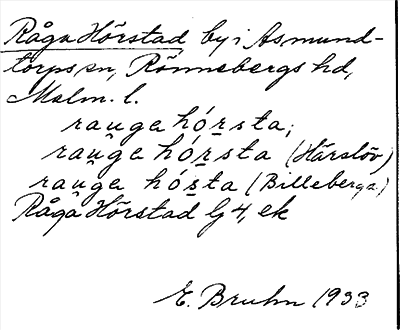 Råga Hörstad by i Asmund-
torps sn, Rönnebergs hd,
Malm. l.
rau̯ga hó̤rsta;
rau̯ga hó̤rsta (Härslöv)
rau̯ga hó̤sta (Billeberga)
Råga Hörstad G4, ek
E. Bruhn 1933